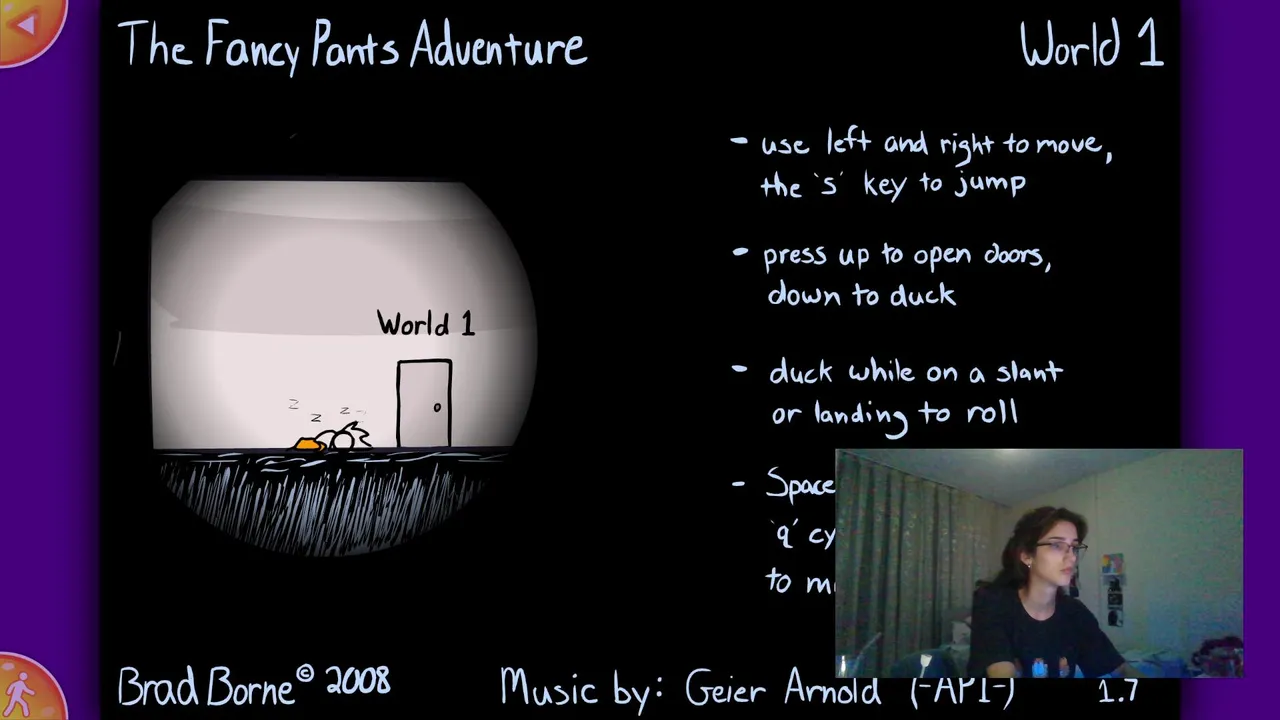 The Fancy Pants Adventure
World 1
- use left and right to move,
the 's' key to jump
- press up to open doors,
down to duck
- duck while on a slant
or landing to roll
- Space
'q'
to
World 1
z z z
Brad Borne © 2008
Music by: Geier Arnold (-API-)
1.7